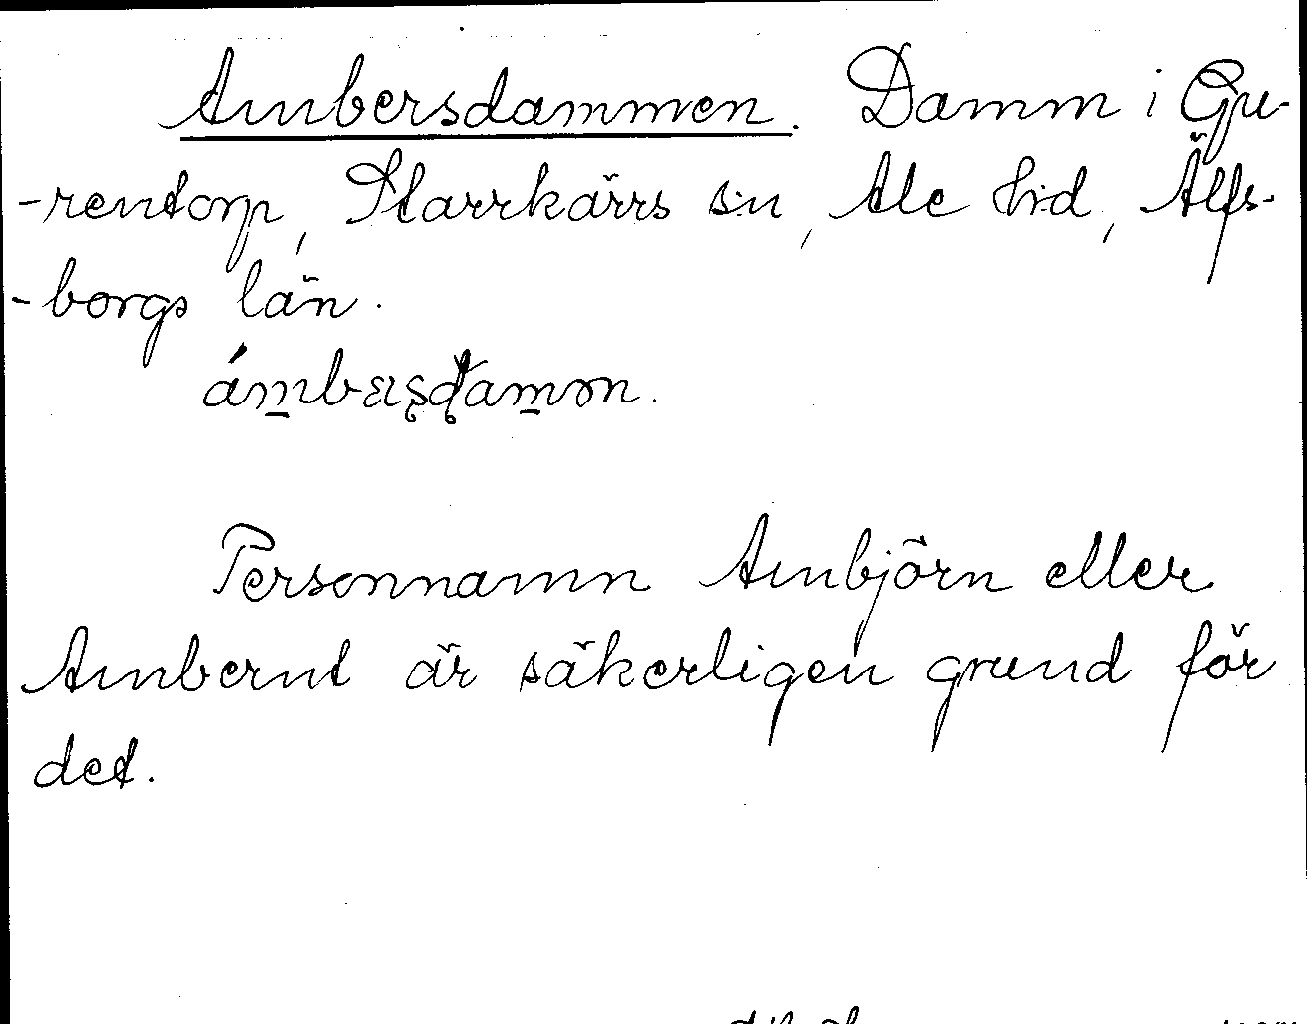 Ambersdammen. Damm i Gu-
-rentorp, Starrkärrs s:n, Ale h:d, Älfs-
-borgs län.
Personnamn Ambjörn eller
Ambernt är säkerligen grund för
det.